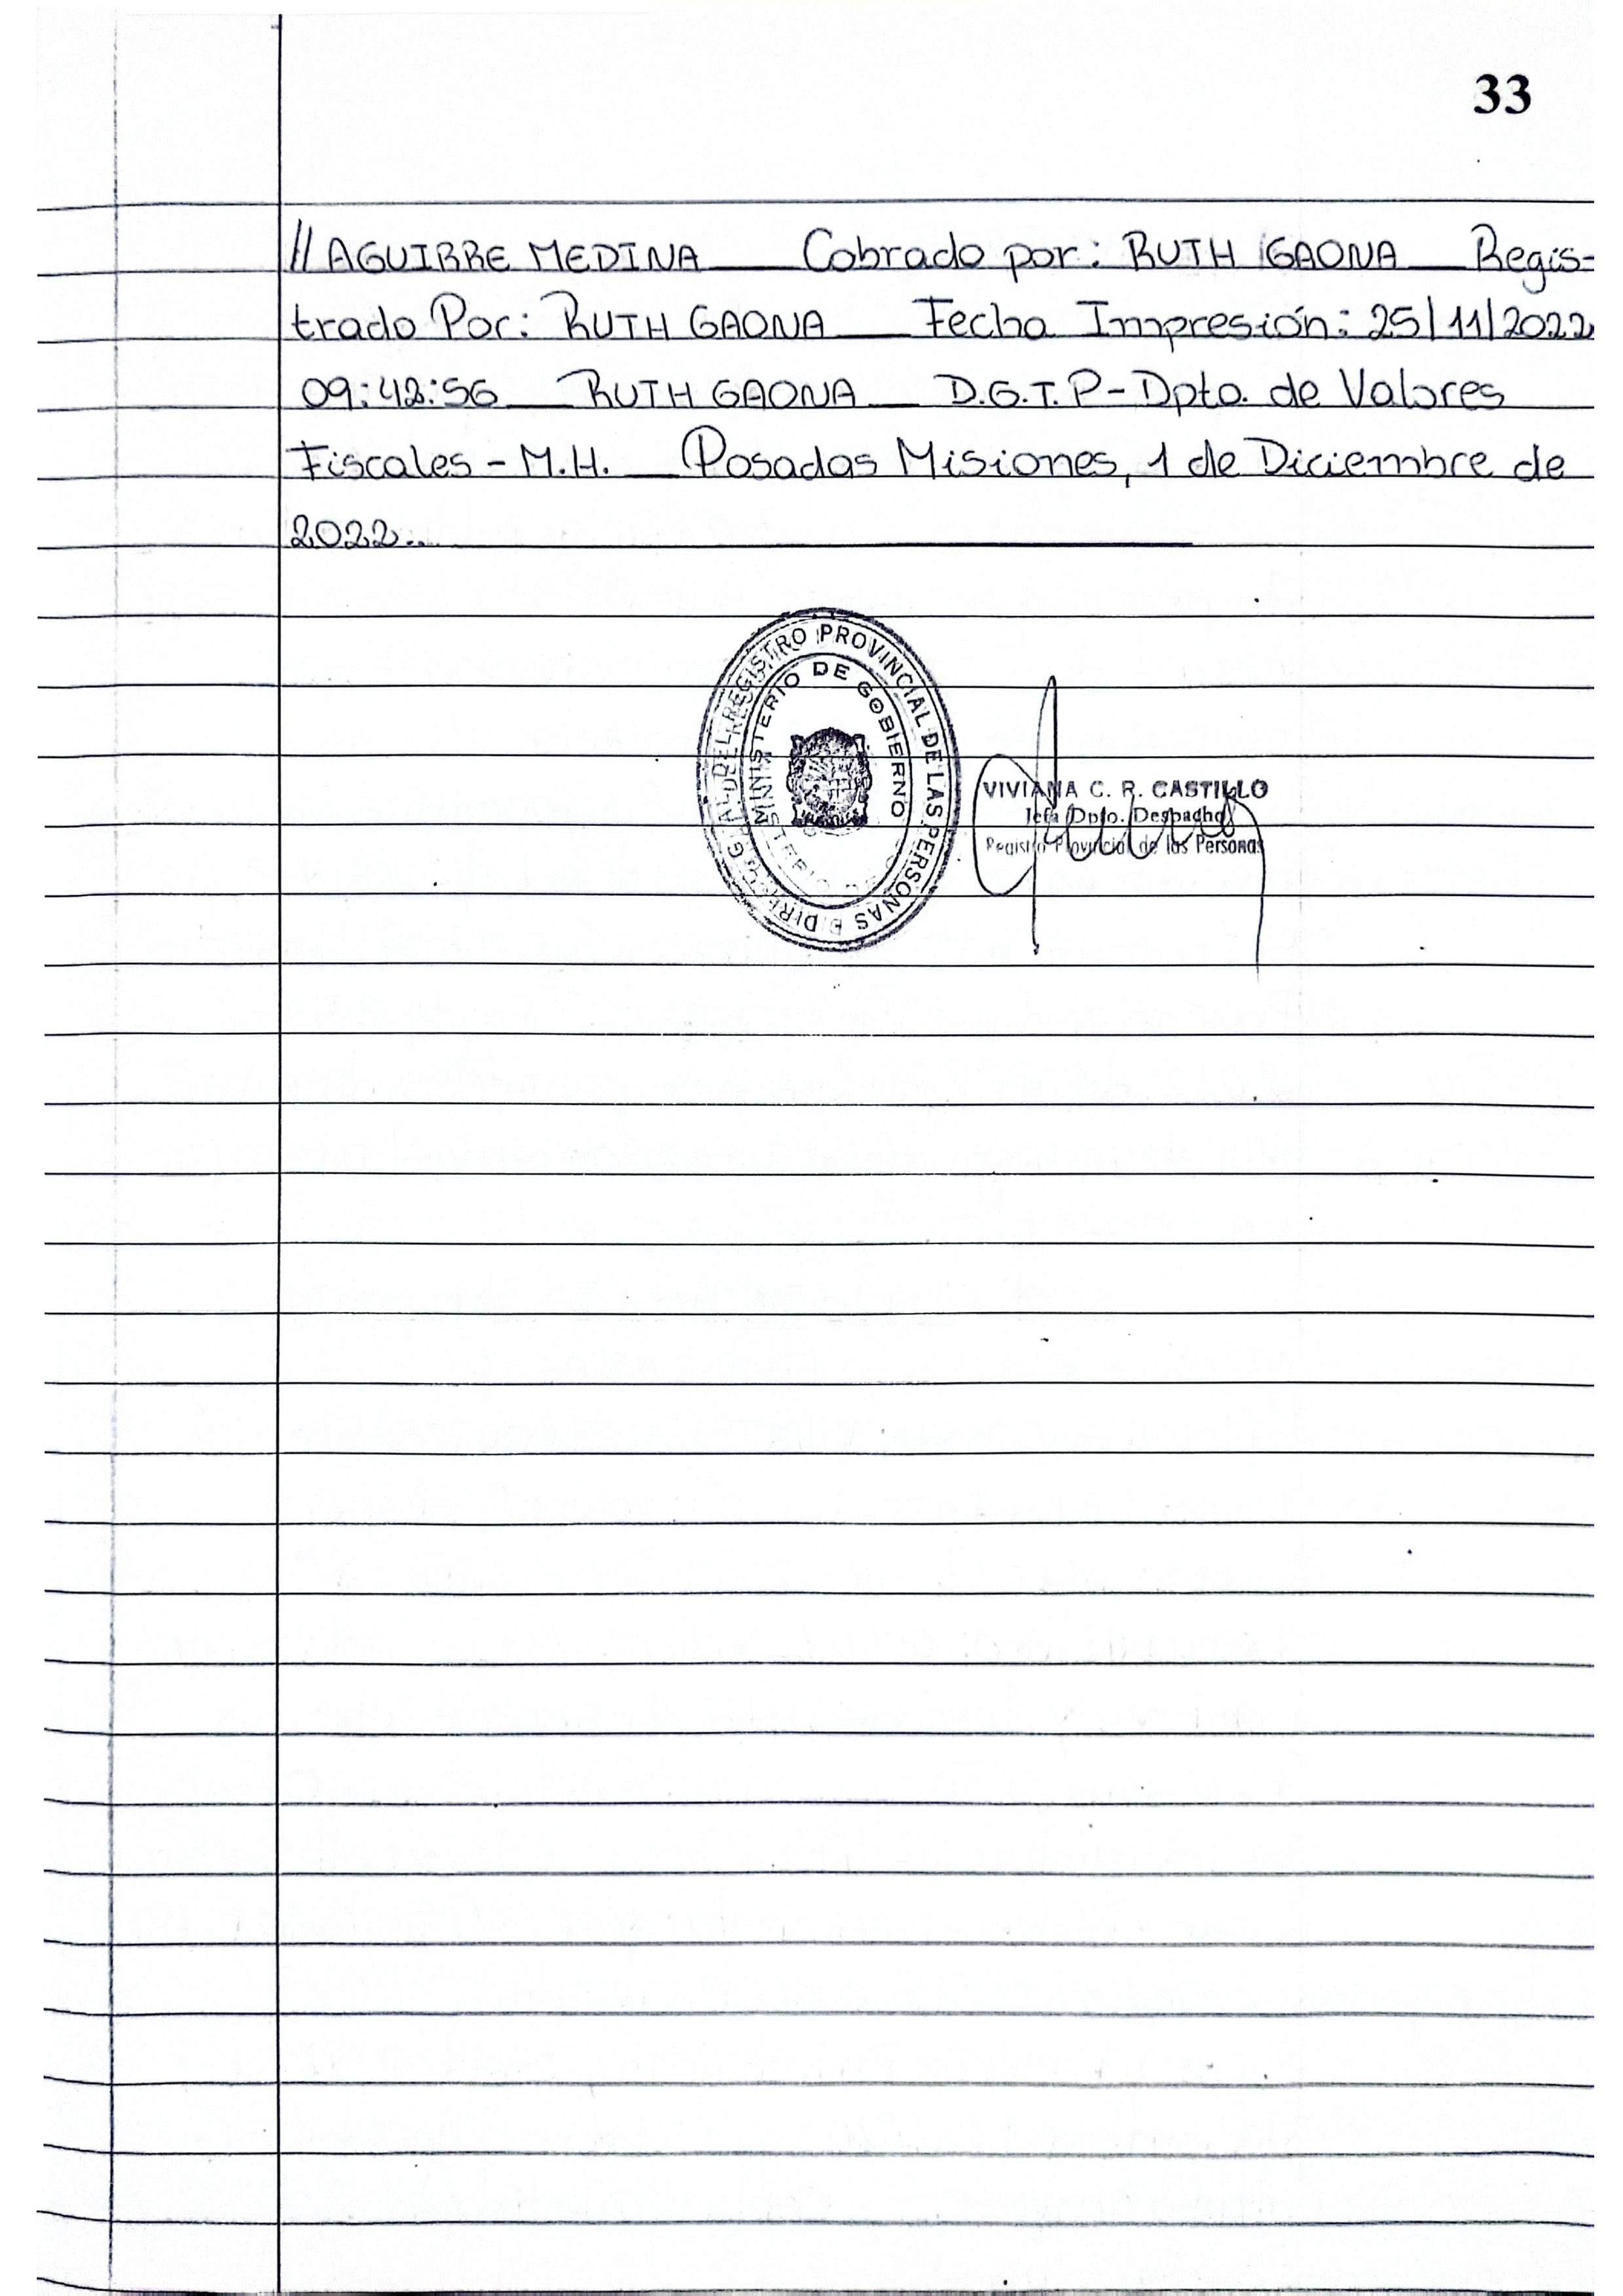 33
// AGUIRRE MEDINA ___ Cobrado por: RUTH GAONA ___ Regis-
trado Por: RUTH GAONA ___ Fecha Impresión: 25/11/2022
09:42:56 ___ RUTH GAONA ___ D.G.T.P-Dpto. de Valores
Fiscales - M.H. ___ Posadas Misiones, 1 de Diciembre de
2022..
REGISTRO PROVINCIAL DE LAS PERSONAS
MINISTERIO DE GOBIERNO
VIVIANA C. R. CASTILLO
Jefa Dpto. Despacho
Registro Provincial de las Personas